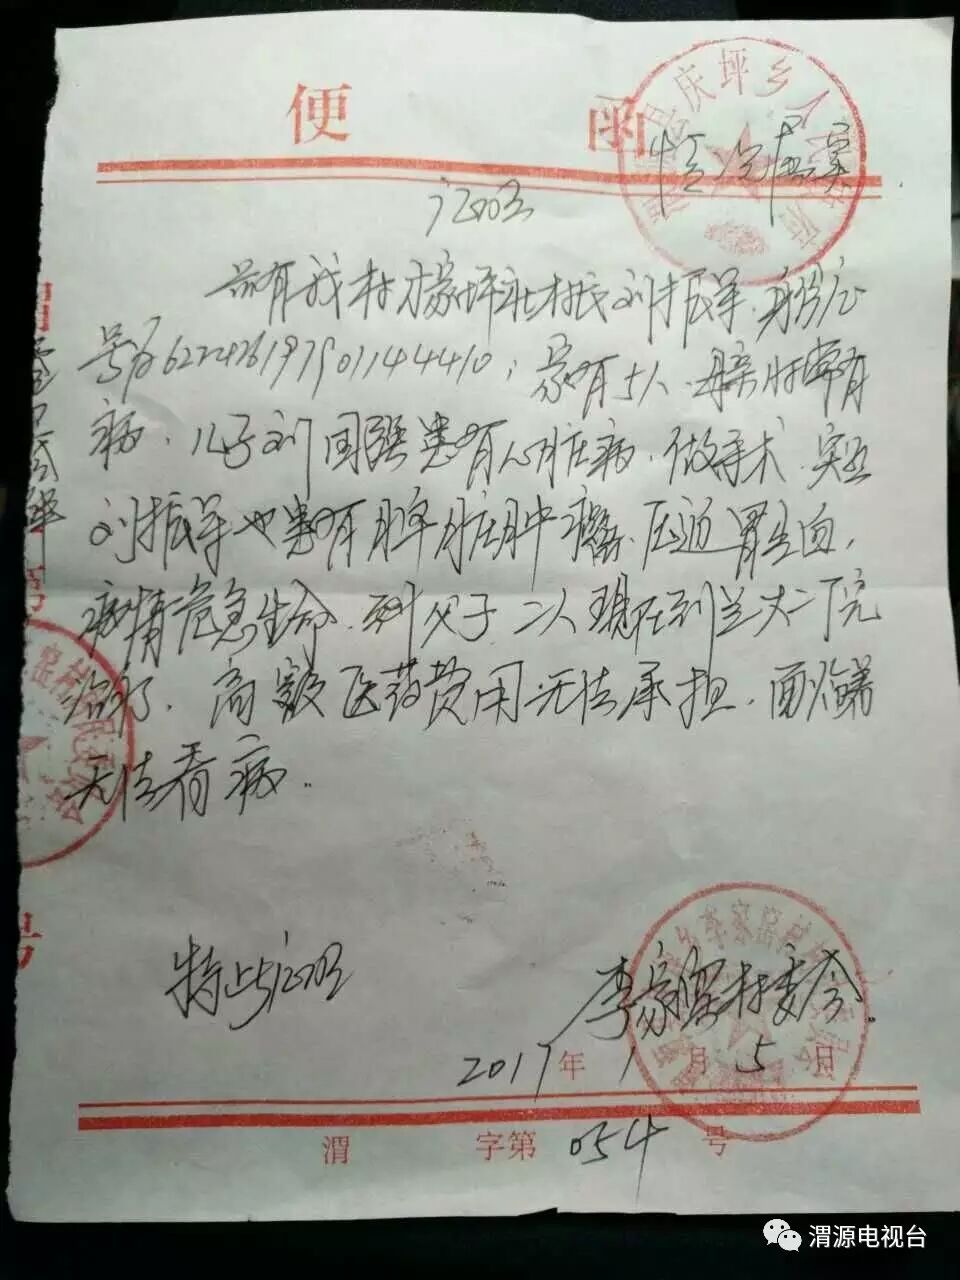 便 函
庆坪乡人
情况属实
证明
兹有我村方家坪社村民刘振学,身份证
号为622426197901144410,家有5人,母亲时常有
病,儿子刘国强患有心脏病,做手术,实且
刘振学也患有脾脏肿瘤,压迫胃出血,
病情危急生命,现父子二人现在到兰大二院
治疗,高额医药费用无法承担,面临着
无法看病。
特此证明
李家窑村委会
2017年1月5日
渭 字第 054 号
渭源电视台